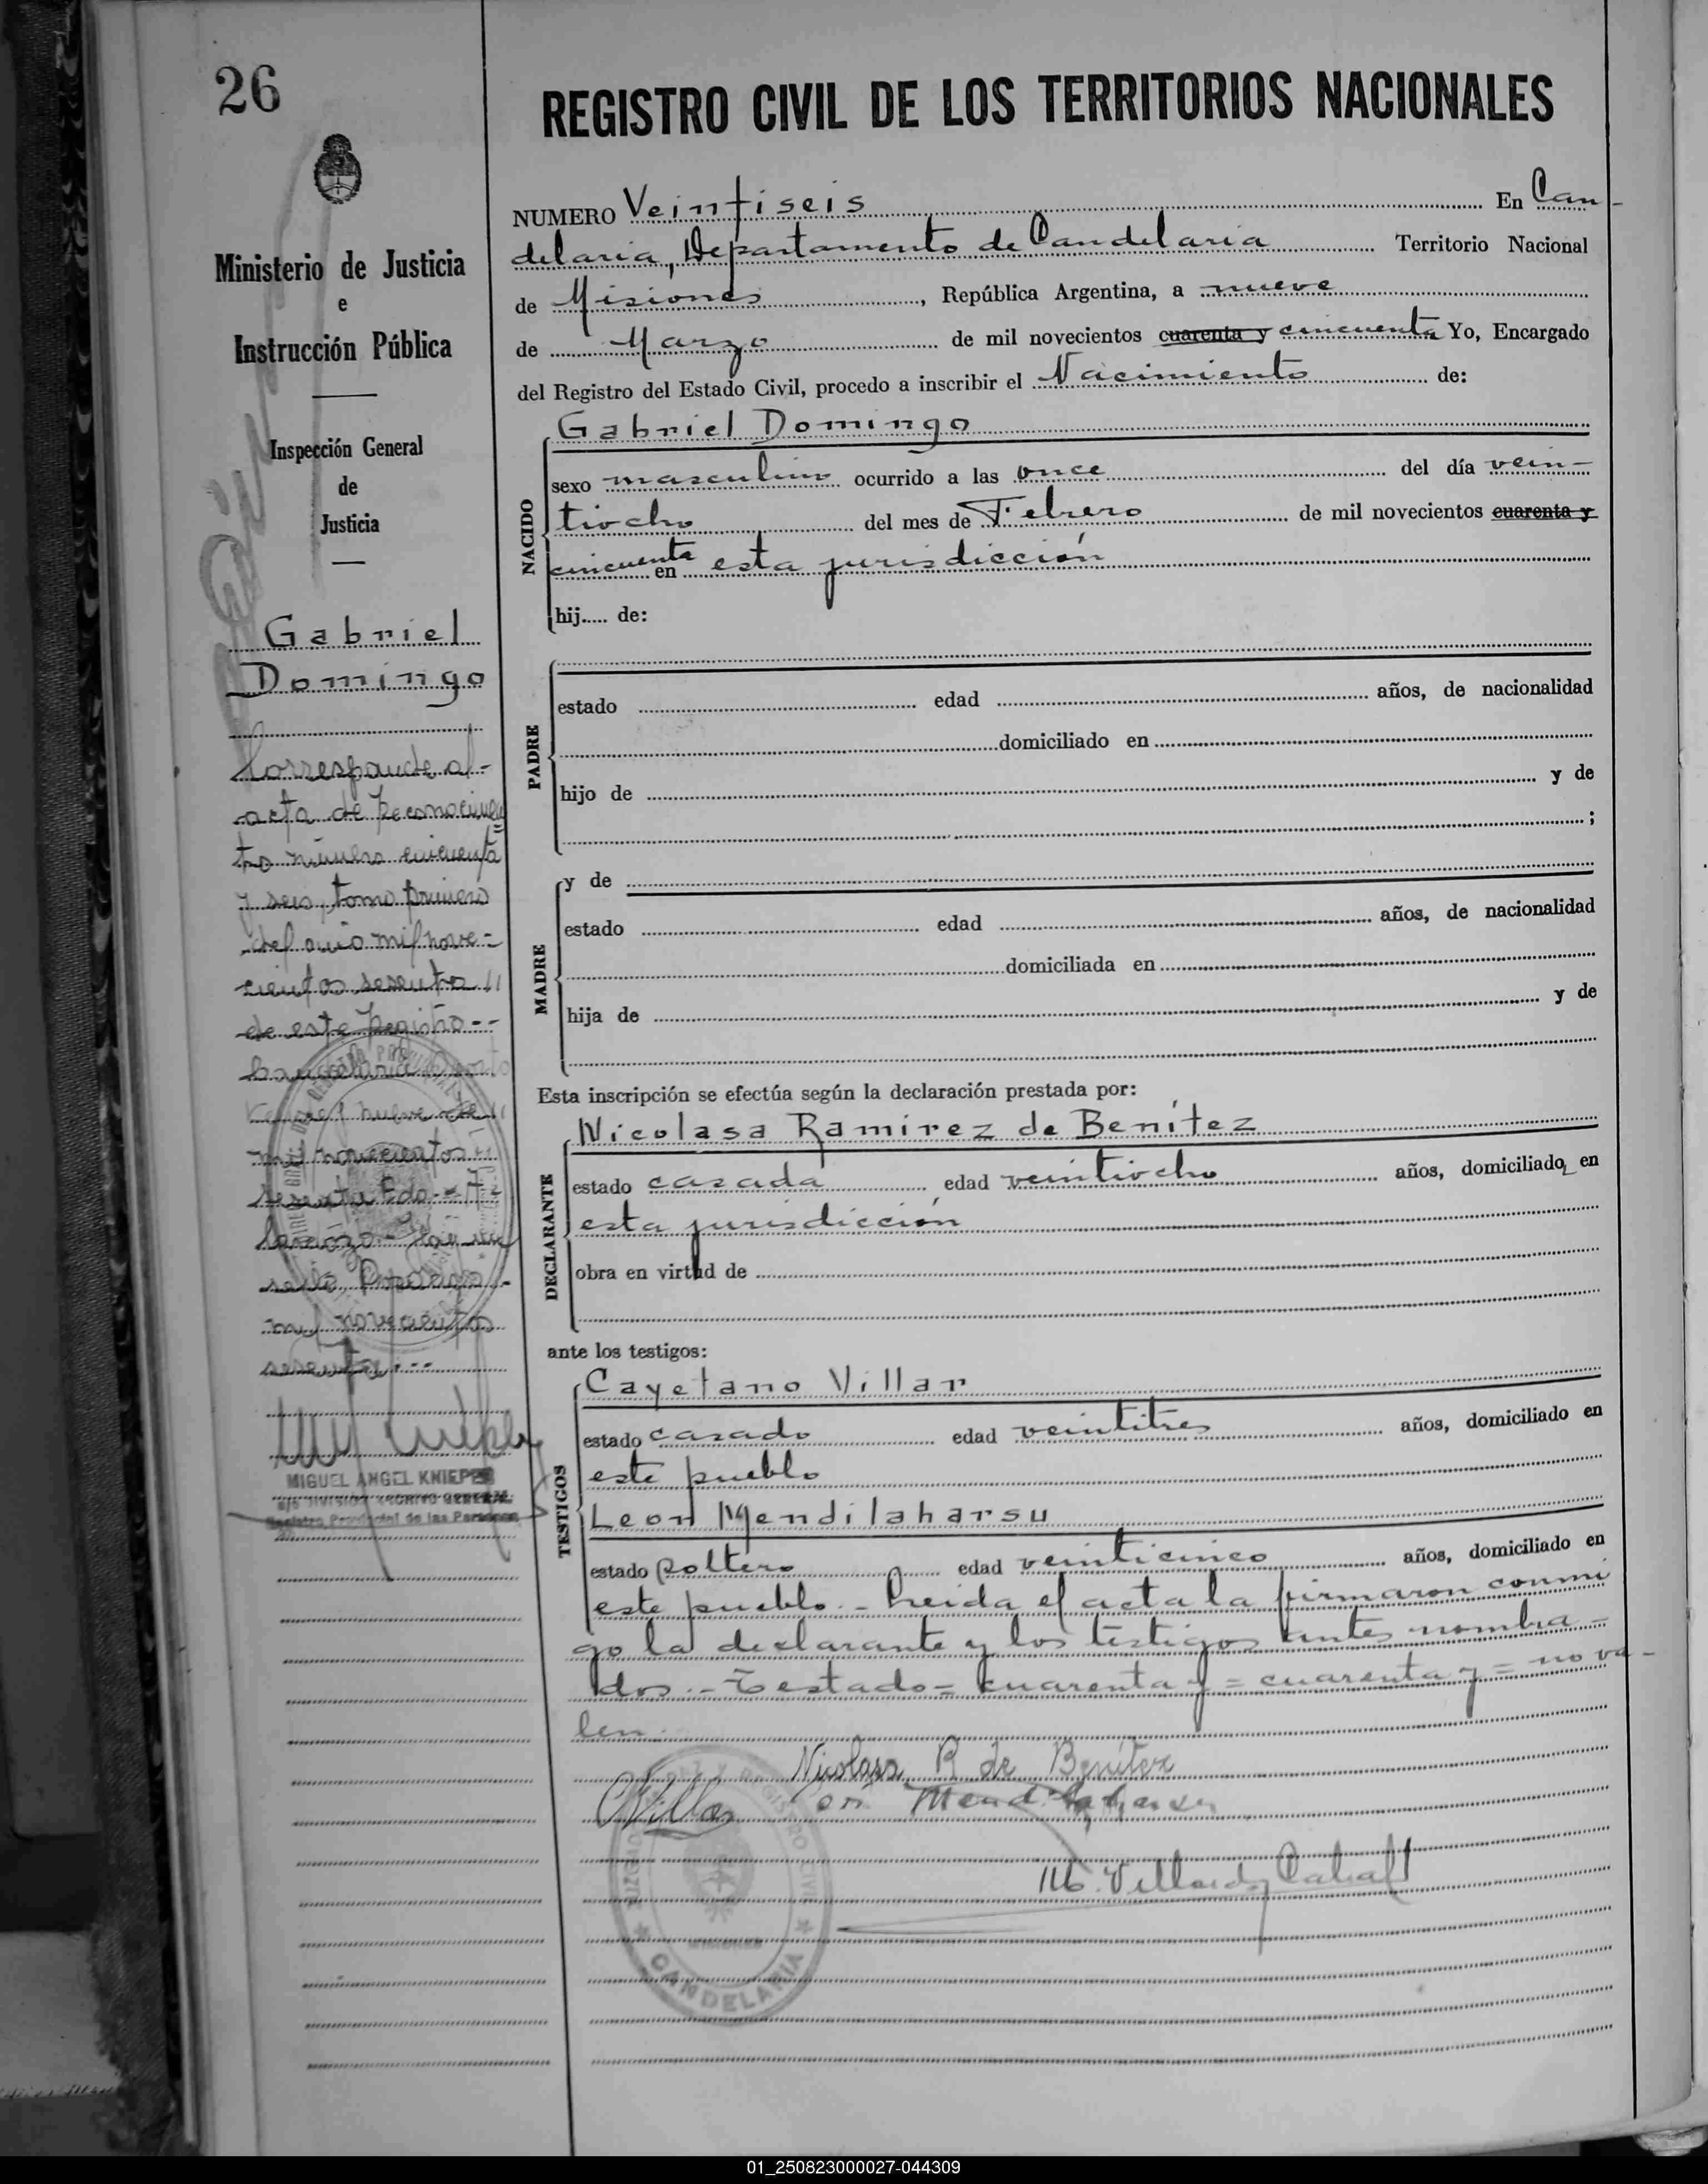 26
Ministerio de Justicia
e
Instrucción Pública
Inspección General
de
Justicia
Gabriel
Domingo
Corresponde al-
acta de Reconocimien
to número cincuenta
y seis, tomo primero
del año mil nove-
cientos sesenta
de este Registro--
Candelaria
nueve de
mil novecientos
sesenta Fdo.
mil novecientos
sesenta.--
MIGUEL ANGEL KNIEPER
DIVISION ARCHIVO GENERAL
Registro Provincial de las Personas
REGISTRO CIVIL DE LOS TERRITORIOS NACIONALES
NUMERO Veintiseis En Can-
delaria, Departamento de Candelaria Territorio Nacional
de Misiones, República Argentina, a nueve
de Marzo de mil novecientos cuarenta y cincuenta Yo, Encargado
del Registro del Estado Civil, procedo a inscribir el Nacimiento de:
NACIDO
Gabriel Domingo
sexo masculino ocurrido a las once del día vein-
tiocho del mes de Febrero de mil novecientos cuarenta y
cincuenta en esta jurisdicción
hij..... de:
PADRE
estado edad años, de nacionalidad
domiciliado en
hijo de y de
;
MADRE
y de
estado edad años, de nacionalidad
domiciliada en
hija de y de
Esta inscripción se efectúa según la declaración prestada por:
DECLARANTE
Nicolasa Ramírez de Benítez
estado casada edad veintiocho años, domiciliado en
esta jurisdicción
obra en virtud de
ante los testigos:
TESTIGOS
Cayetano Villar
estado casado edad veintitres años, domiciliado en
este pueblo
Leon Mendilaharsu
estado soltero edad veinticinco años, domiciliado en
este pueblo.- Leida el acta la firmaron conmi
go la declarante y los testigos antes nombra-
dos.- Testado= cuarenta y = cuarenta y = no va-
len.
Nicolasa R de Benítez
CVillar on Mendilaharsu
M. Cabral
JUZGADO DE PAZ Y REGISTRO CIVIL
MISIONES
★ CANDELARIA ★
01_250823000027-044309